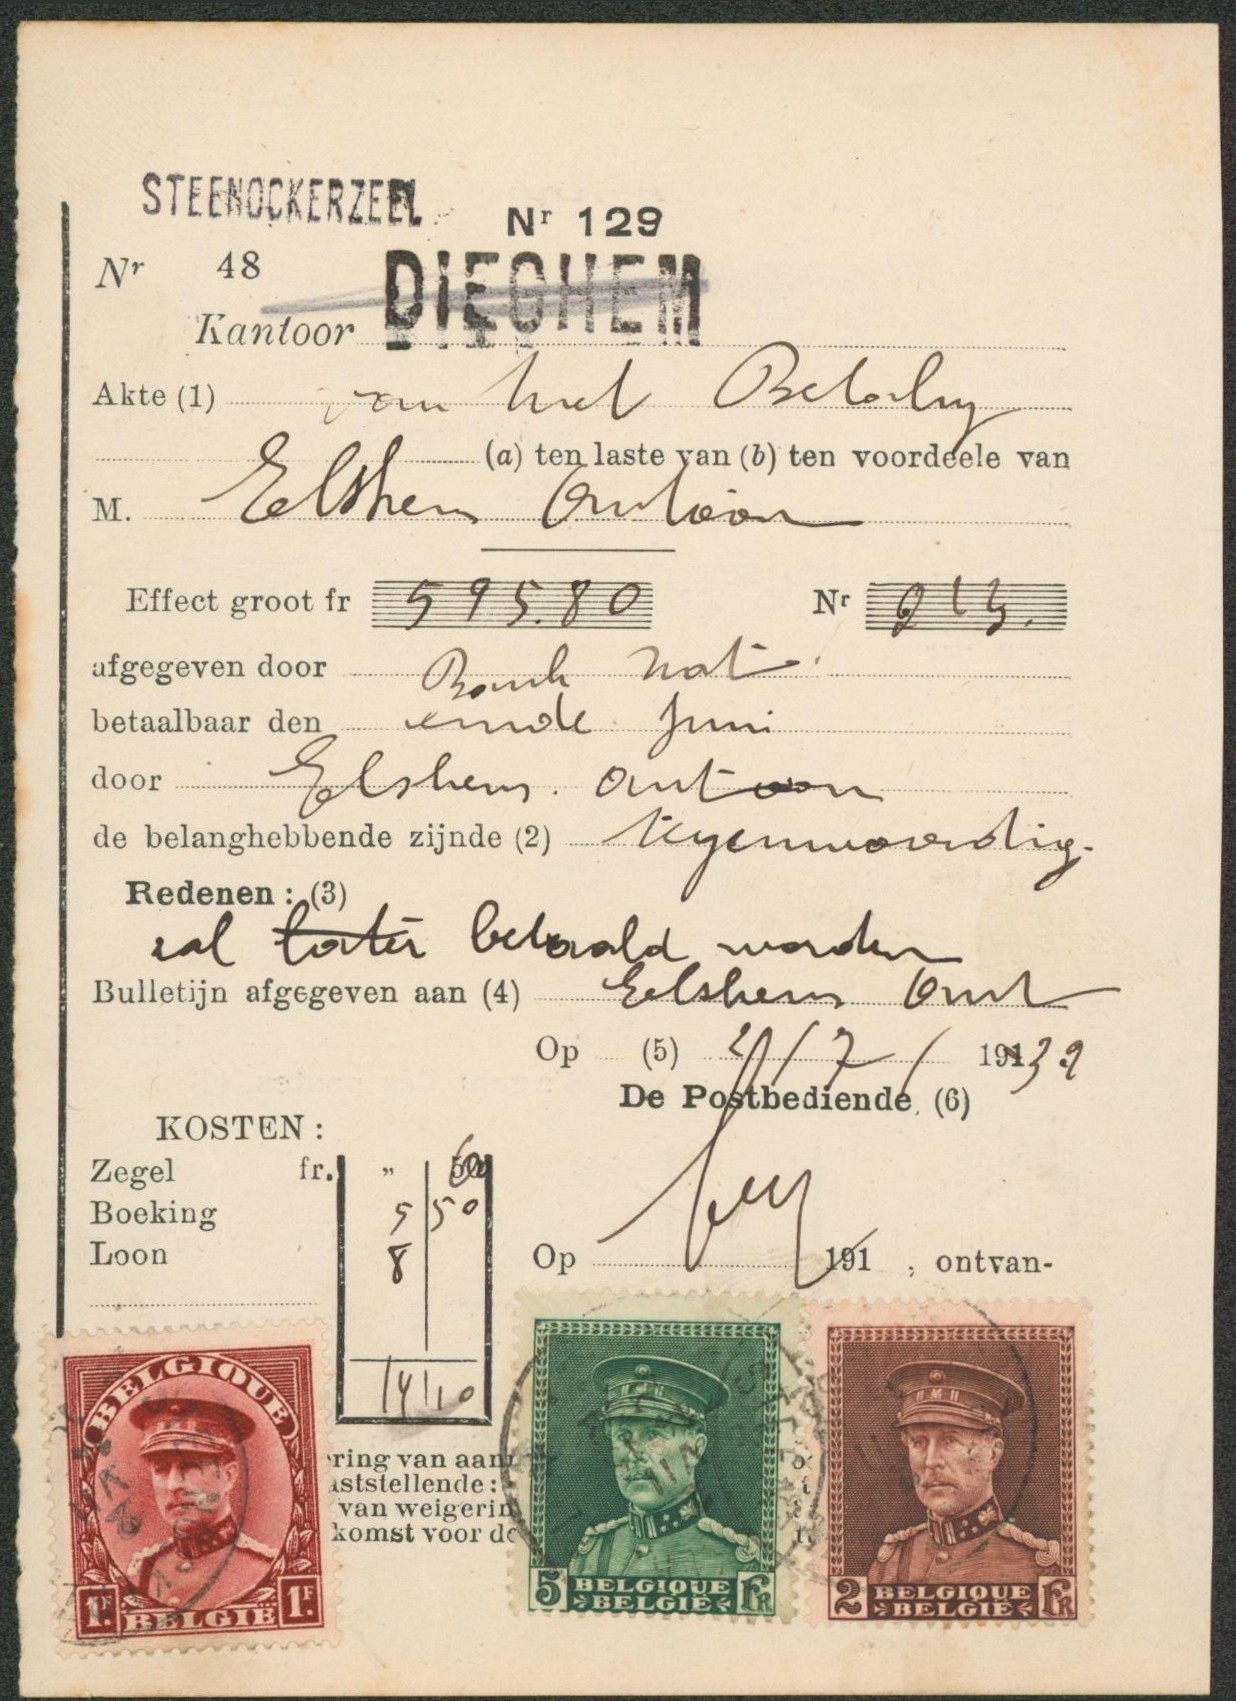 STEENOCKERZEEL
Nr 129
Nr 48
DIEGHEM
Kantoor
Akte (1) van het
(a) ten laste van (b) ten voordeele van
M. Elskens Antoon
Effect groot fr 595.80 Nr 213.
afgegeven door Bank Nat.
betaalbaar den einde Juni
door Elskens. Antoon
de belanghebbende zijnde (2) tegenwoordig.
Redenen : (3)
zal later betaald worden
Bulletijn afgegeven aan (4) Elskens Ant
Op (5) 2/7/ 19132
De Postbediende, (6)
KOSTEN :
Zegel fr. „ 60
Boeking 5 50
Loon 8
Op 191 , ontvan-
14 10
ring van aan
aststellende :
van weigerin
komst voor de
BELGIQUE
1F. 1F.
BELGIË
5 BELGIQUE BELGIË FR
2 BELGIQUE BELGIË FR